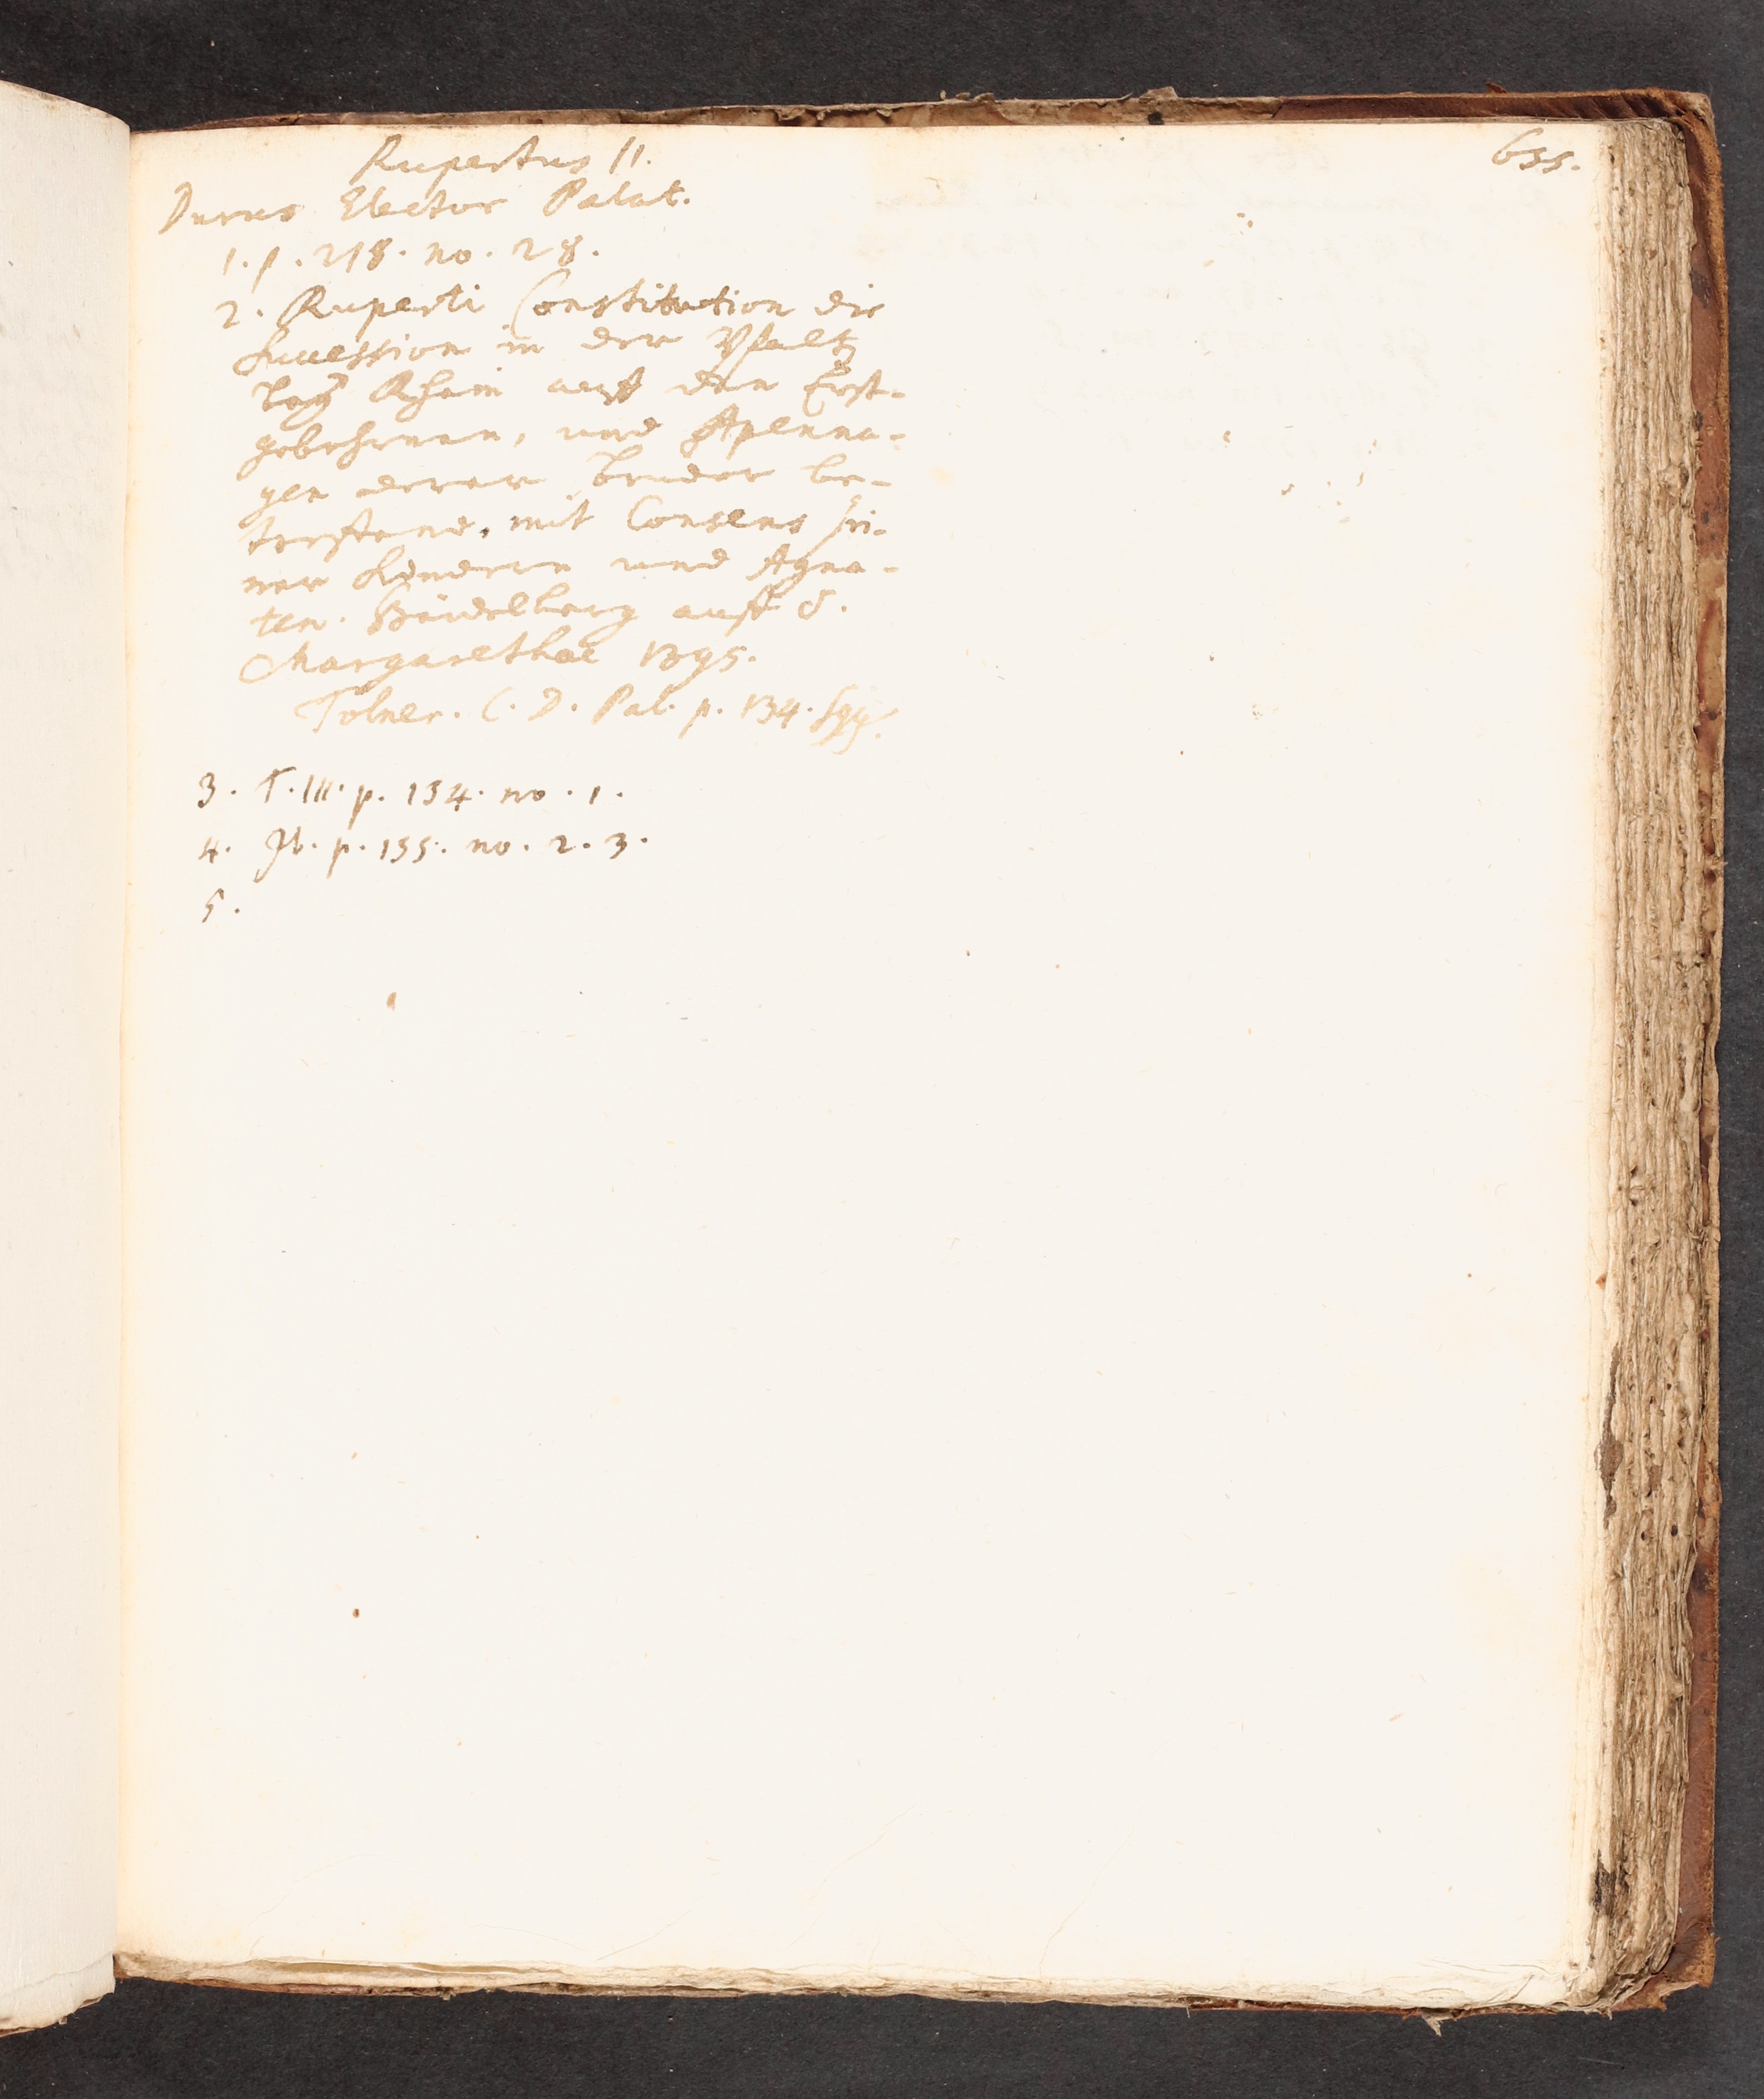 655.
Rupertus II.
Durus Elector Palat.
1. p. 218. no. 28.
2. Ruperti Constitution die
Succession in der Pfaltz
bey Rhein auff den Erst-
gebohrnen, und Apenna-
gen derer Bruder be-
treffend, mit Consens sei-
ner Kindern und Agna-
ten. Heidelberg auff S.
Margarethae 1395.
Tolner. C. D. Pal. p. 134. sqq.
3. T. III. p. 154. no. 1.
4. Ib. p. 155. no. 2. 3.
5.